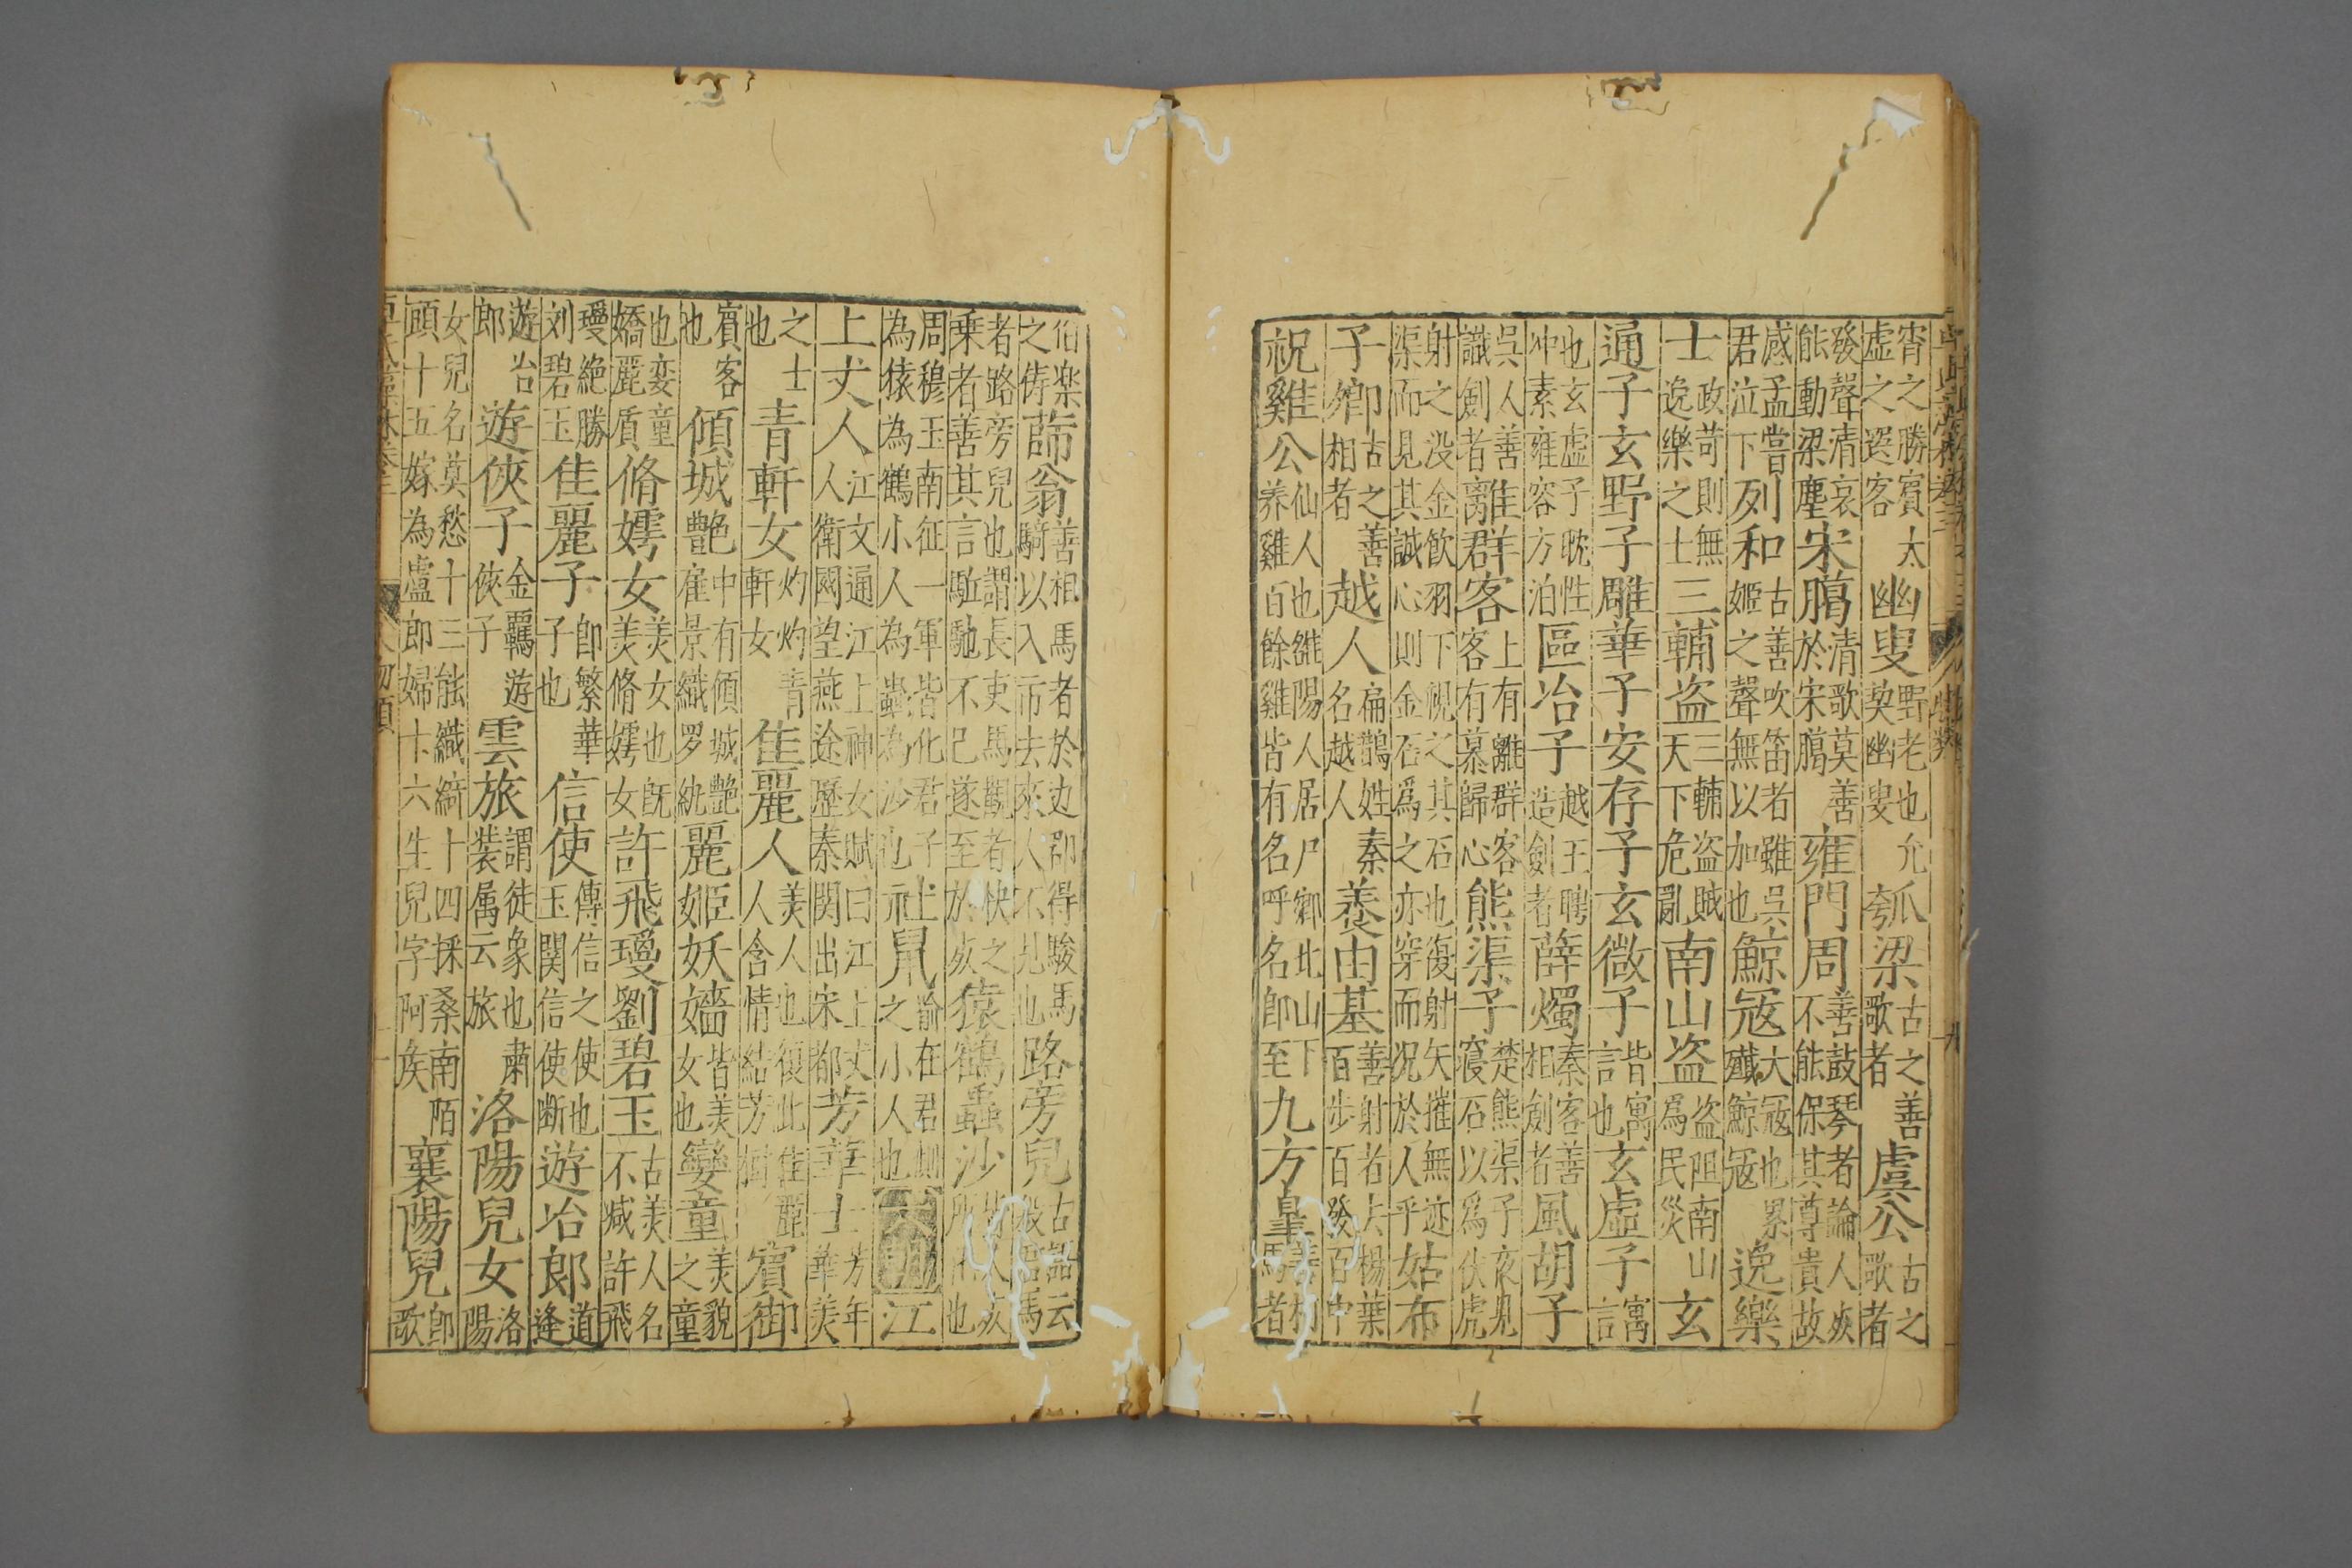 宵之勝賓太虚之遐客幽叟野老也允契幽叟瓠梁古之善歌者虞公古之歌者
發聲清哀能動梁塵宋臈清歌莫善於宋臈雍門周善鼓琴者論人疾不能保其尊貴故
感孟嘗君泣下列和古善吹笛者雖吳姬之聲無以加也鯨寇大寇也累殲鯨寇逸樂
士政苛則無逸樂之士三輔盗三輔盗賊天下危亂南山盗盗阻南山爲民災玄
通子玄野子雕華子安存子玄微子皆寓言也玄虛子寓言
也玄虚子耽性冲素雍容方泊區冶子越王聘造劍者薛燭秦客善相劍者風胡子
吳人善識劍者離群客上有離群客客有慕歸心熊渠子楚熊渠子夜見寢石以爲伏虎
射之没金飲羽下視之其石也復射矢摧無迹渠而見其誠心則金石爲之亦穿而况於人乎姑布
子卿古之善相者越人扁鵲姓秦名越人養由基善射者去楊葉百步百發百中
祝雞公仙人也雒陽人居尸鄉北山下养雞百餘雞皆有名呼名即至九方臯善相馬者
伯楽之儔蒒翁善相馬者於边郡得駿馬騎以入市去來人不見也路旁兒古語云殺君馬
者路旁兒也謂長吏馬觀者快之乗者善其言駈馳不已遂至於疾猿鶴蟲沙
周穆玉南征一軍皆化君子為猿為鶴小人為蟲為沙也社鼠諭在君側之小人也江
上丈人江文通江上神女賦曰江上丈人衛國望燕途歷秦関出宋都芳華士芳年華美
之士也青軒女灼灼青軒女佳麗人美人也復此佳麗人含情結芳樹賓御即
賓客也傾城艶中有傾城艶寉景織罗紈麗姬妖嬙皆美女也孌童美貌之童
也孌童嬌麗質脩嫮女美女也既美脩嫮女許飛瓊劉碧玉古美人名不减許飛
瓊絶勝刘碧玉佳麗子即繁華子也信使傳信之使也玉関信使断遊冶郎道逢
遊冶郎遊俠子金覊遊俠子雲旅謂徒象也肅装属云旅洛陽兒女洛陽
女兒名莫愁十三能織綺十四採桑南陌頭十五嫁為盧郎婦十六生兒字阿矦襄陽兒即歌